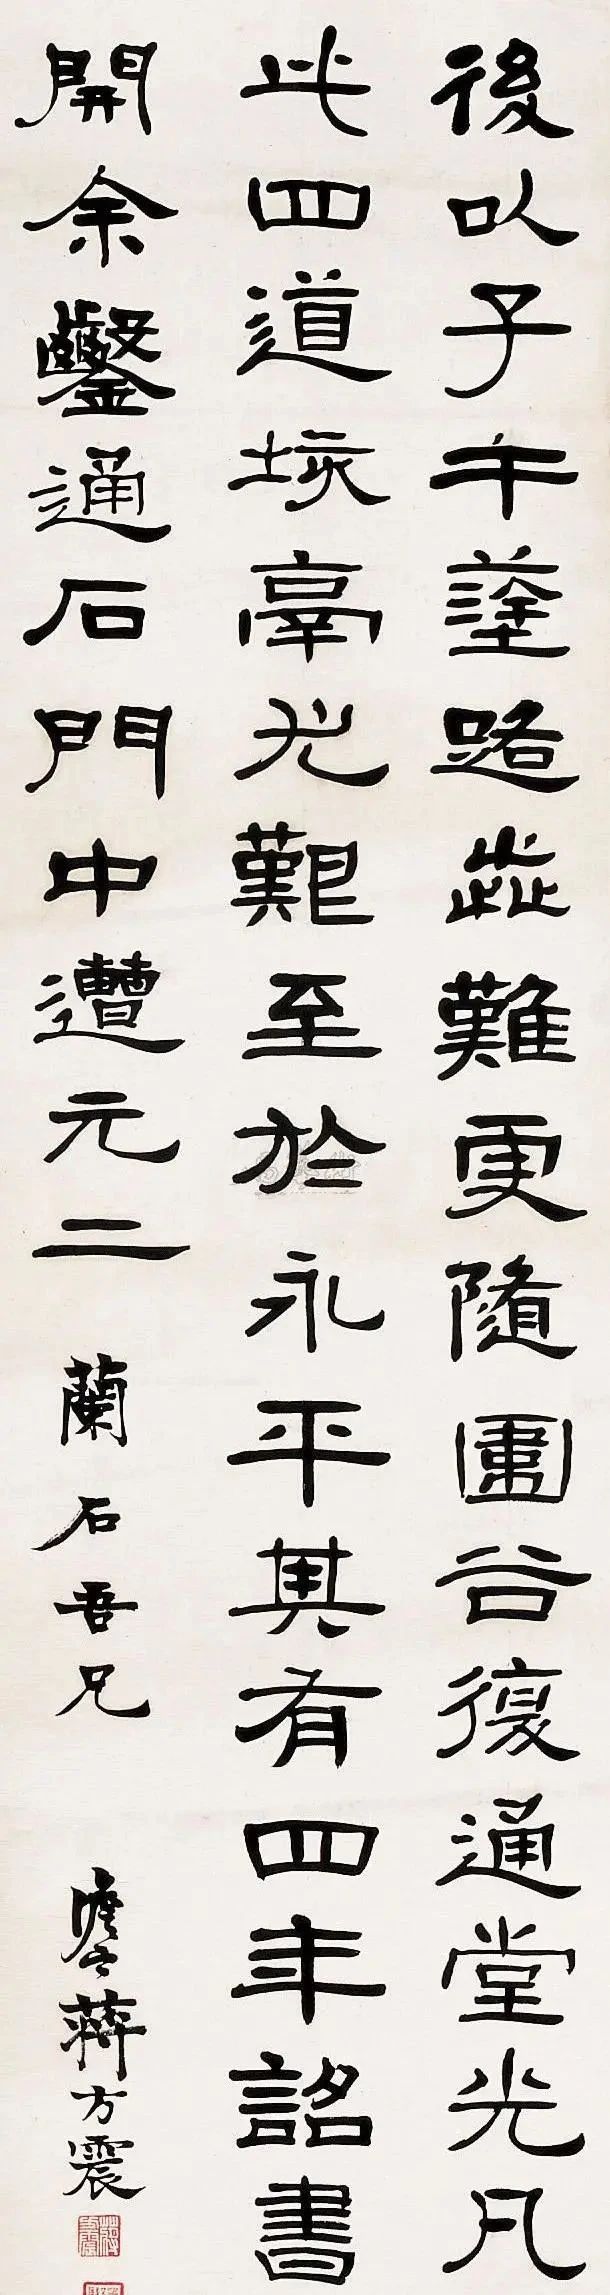 後以子午塗路歰難更隨圍谷復通堂光凡
此四道垓鬲尤艱至於永平其有四年詔書
開余鑿通石門中遭元二
蘭石吾兄
蔣方震